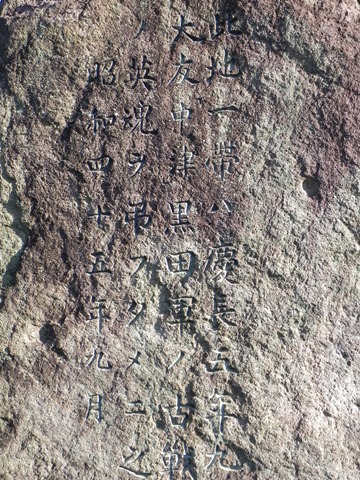 此地一帯ハ慶長五年九
大友中津黒田軍ノ古戦
ノ英魂ヲ弔フタメニ之
昭和四十五年九月